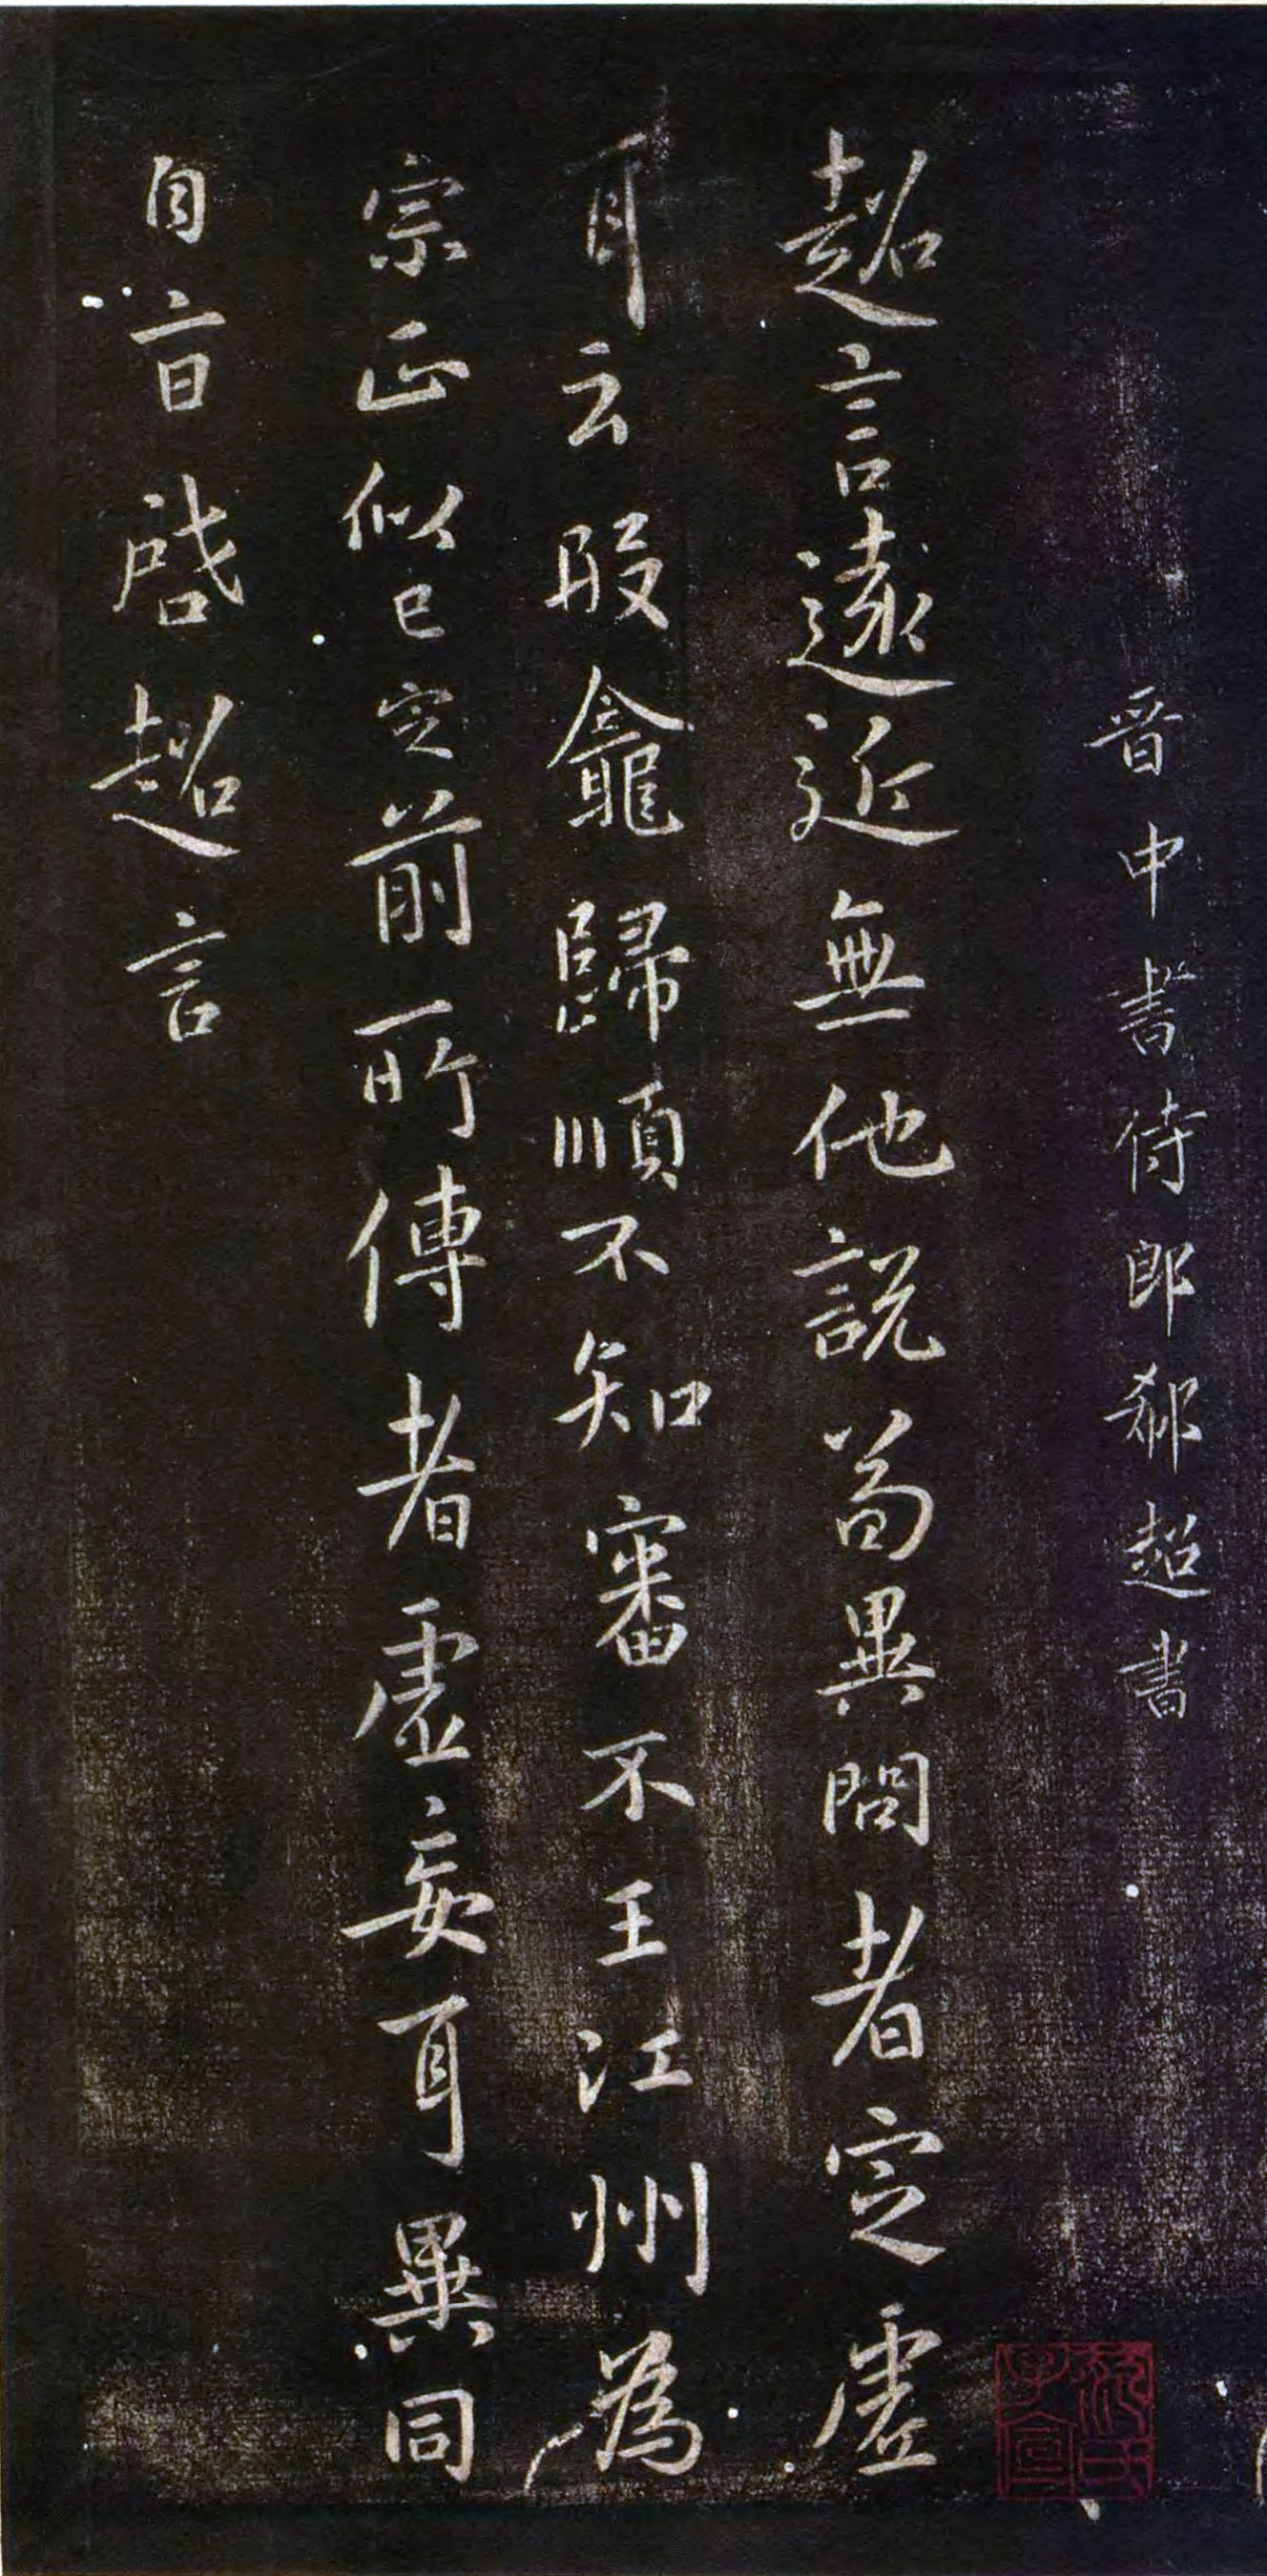 晉中書侍郎郗超書
超言遠近無他說苟異問者定虛
耳云殷龕歸順不知審不王江州為
宗正似已定前所傳者虛妄耳異同
自旨啓超言